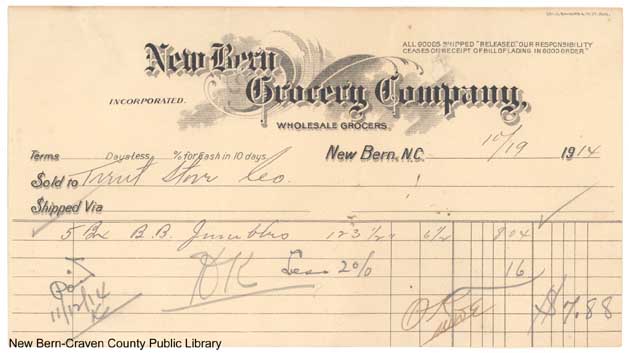 ALL GOODS SHIPPED "RELEASED" OUR RESPONSIBILITY
CEASES ON RECEIPT OF BILL OF LADING IN GOOD ORDER"
New Bern
Grocery Company,
INCORPORATED.
WHOLESALE GROCERS.
Terms Days Less % for Cash in 10 days. New Bern, N.C. 10/19 1914
Sold to Trent Store Co.
Shipped Via
5 Bx B. B. 123 1/2 6 1/2 8.04
OK Less 2% 16
Paid
11/12/14
OK $7.88
New Bern-Craven County Public Library